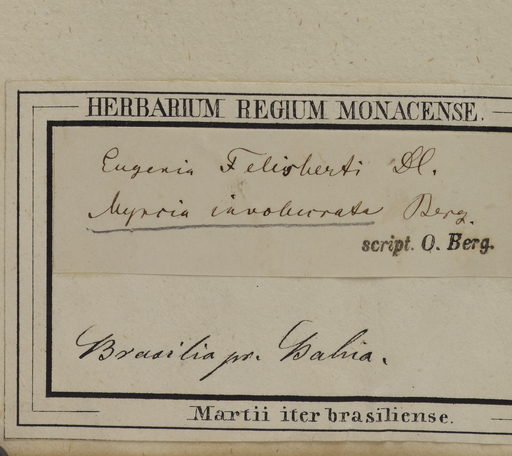 HERBARIUM REGIUM MONACENSE.
Eugenia Felisberti DC.
Myrcia involucrata Berg.
script. O. Berg.
Brasilia pr. Bahia.
Martii iter brasiliense.